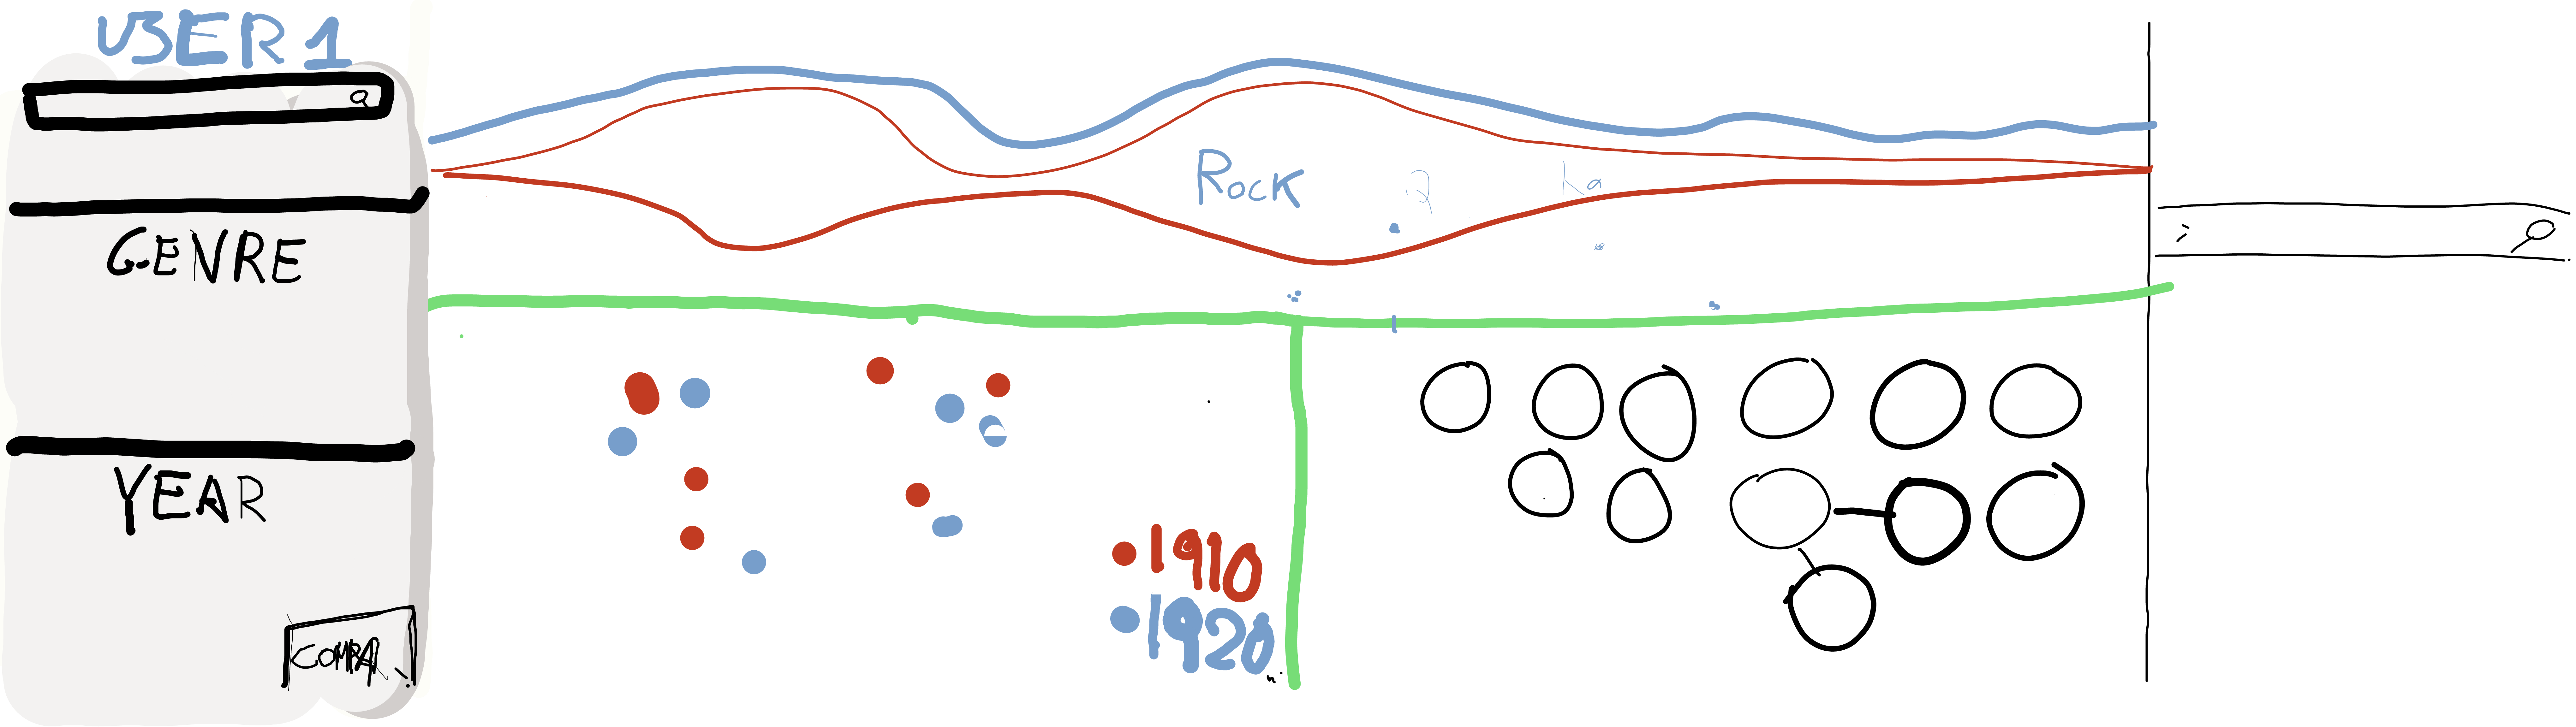 USER 1
GENRE
YEAR
COMPA.
ROCK
1910
1920